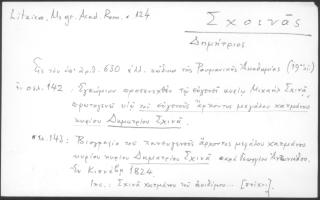 Litzica, Ms gr. Acad. Rom. σ 124
Σχοινᾶς
Δημήτριος.
Εἰς τὸν ὑπ' ἀριθ. 630 ἑλλ. κώδικα τῆς Ρουμανικῆς Ἀκαδημίας (19ου αἰ.)
ἐν σελ. 142. Ἐγκώμιον προσενεχθὲν τῷ εὐγενεῖ κυρίῳ Μιχαὴλ Σχινᾷ,
πρωτογενεῖ υἱῷ τοῦ εὐγενοῦς ἄρχοντος μεγάλου χατμάνου
κυρίου Δημητρίου Σχινᾶ.
σελ. 143: Βιογραφία τοῦ πανευγενοῦς ἄρχοντος μεγάλου χατμάνου
κυρίου κυρίου Δημητρίου Σχινᾶ παρὰ Γεωργίου
Ἐν Κισνόβῃ 1824.
Σχινᾶ χατμάνου τοῦ ἀοιδίμου... [στίχοι].